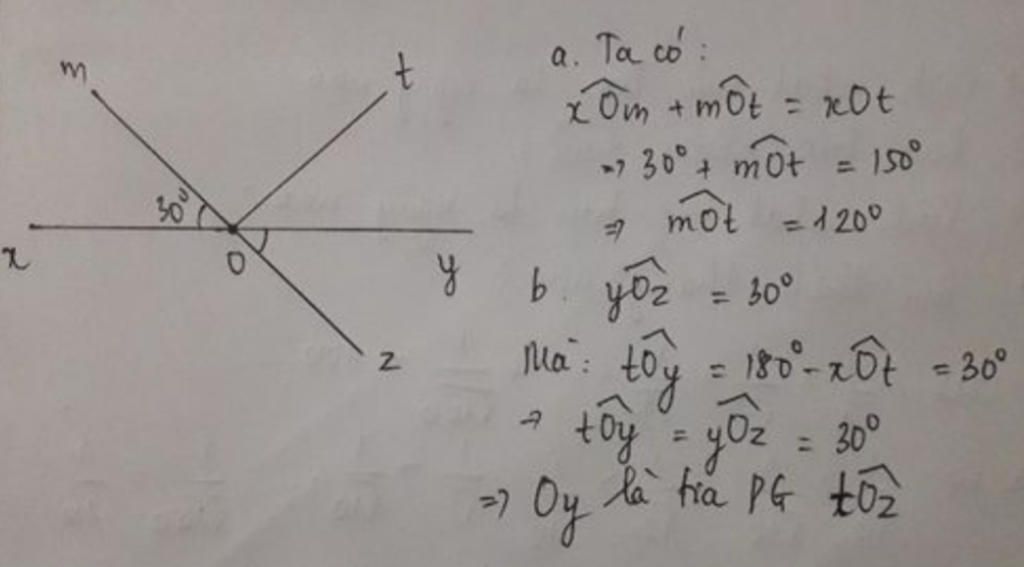 m
t
30°
x
O
y
z
a. Ta có:
xOm + mOt = xOt
⇒ 30° + mOt = 150°
⇒ mOt = 120°
b. yOz = 30°
Mà: tOy = 180° - xOt = 30°
⇒ tOy = yOz = 30°
⇒ Oy là tia PG tOz